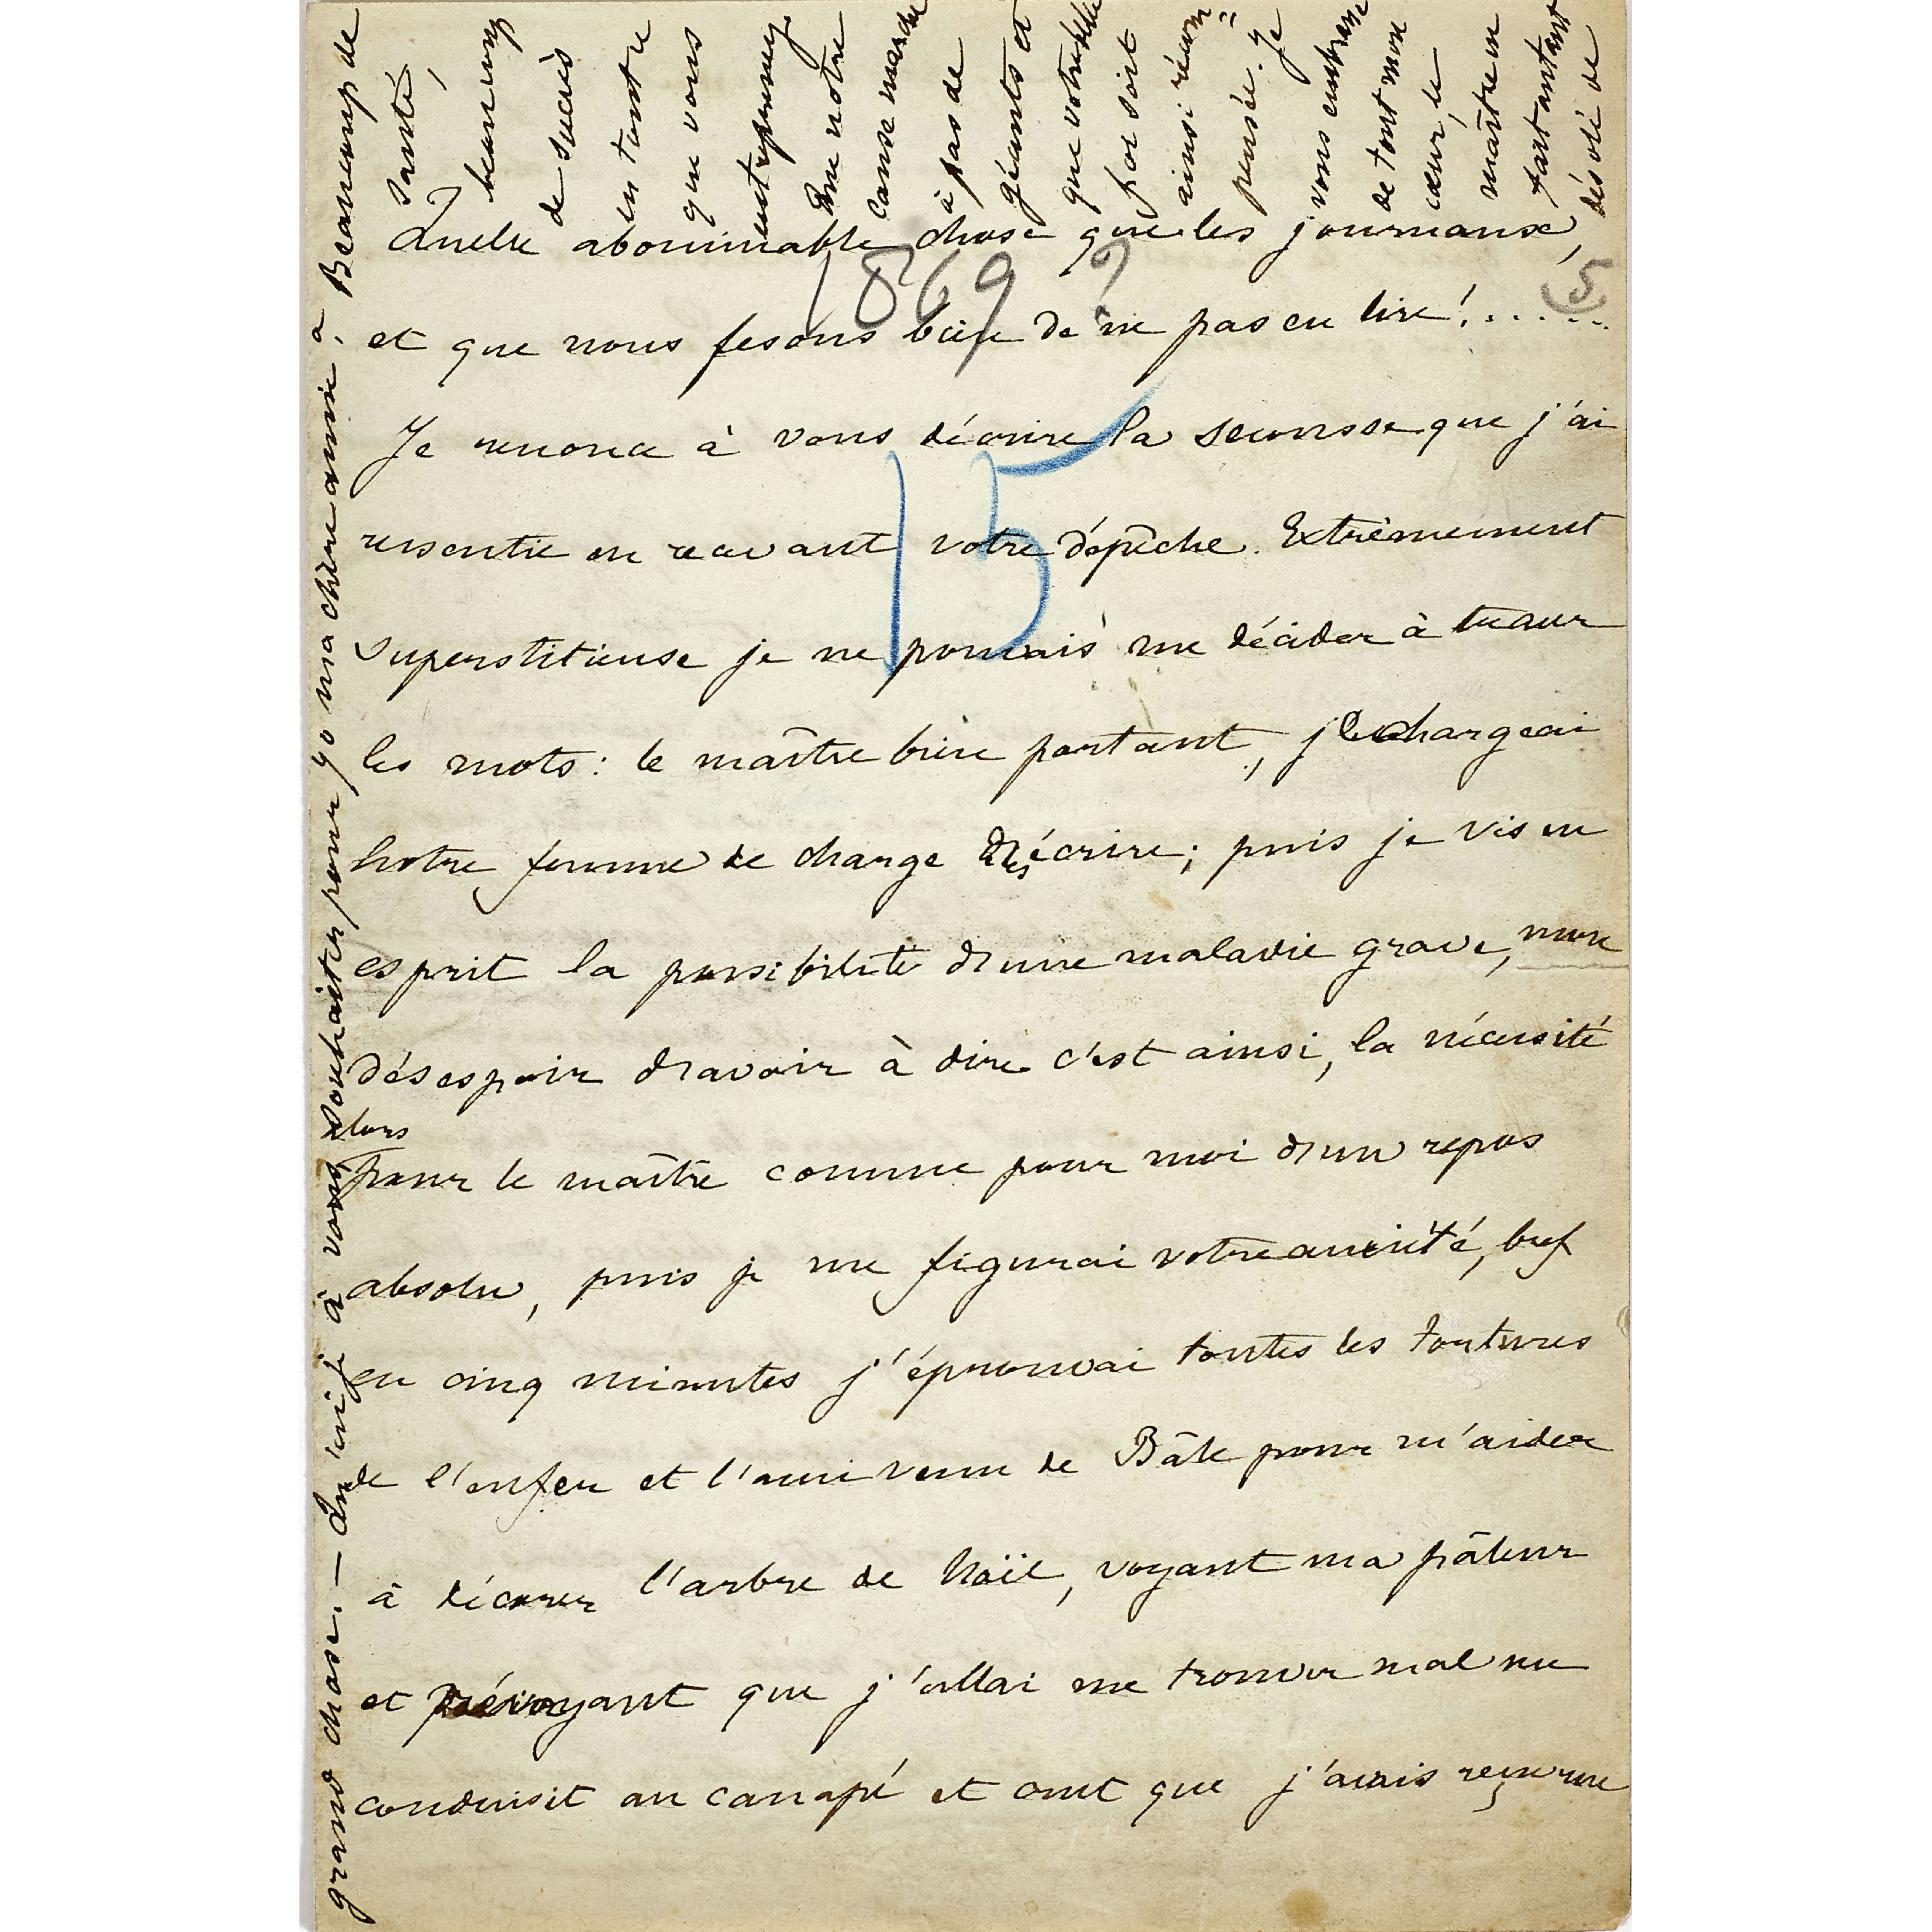 Quelle abominable chose que les journaux,
1869 ?
5
et que nous fesons bien de ne pas en lire!......
Je renonce à vous décrire la secousse que j'ai
15
ressentie en recevant votre dépêche. Extrêmement
superstitieuse je ne pouvais me décider à tracer
les mots: le maître bien portant, je chargeai
notre femme de charge de les écrire; puis je vis en
esprit la possibilité d'une maladie grave, mon
désespoir d'avoir à dire c'est ainsi, la nécessité
alors
pour le maître comme pour moi d'un repos
absolu, puis je me figurai votre anxiété, bref
en cinq minutes j'éprouvai toutes les tortures
de l'enfer et l'ami venu de Bâle pour m'aider
à décorer l'arbre de Noël, voyant ma pâleur
et prévoyant que j'allai me trouver mal me
conduisit au canapé et crut que j'avais reçu une
grand chose. — Qu'ai-je à vous souhaiter pour 70 ma chère amie, a Beaucoup de
santé,
beaucoup
de succès
en tout ce
que vous
entreprenez
Que notre
cause marche
à pas de
géants et
que votre belle
foi soit
ainsi récom=
pensée. Je
vous embrasse
de tout mon
cœur, le
maître en
fait autant
désolé de